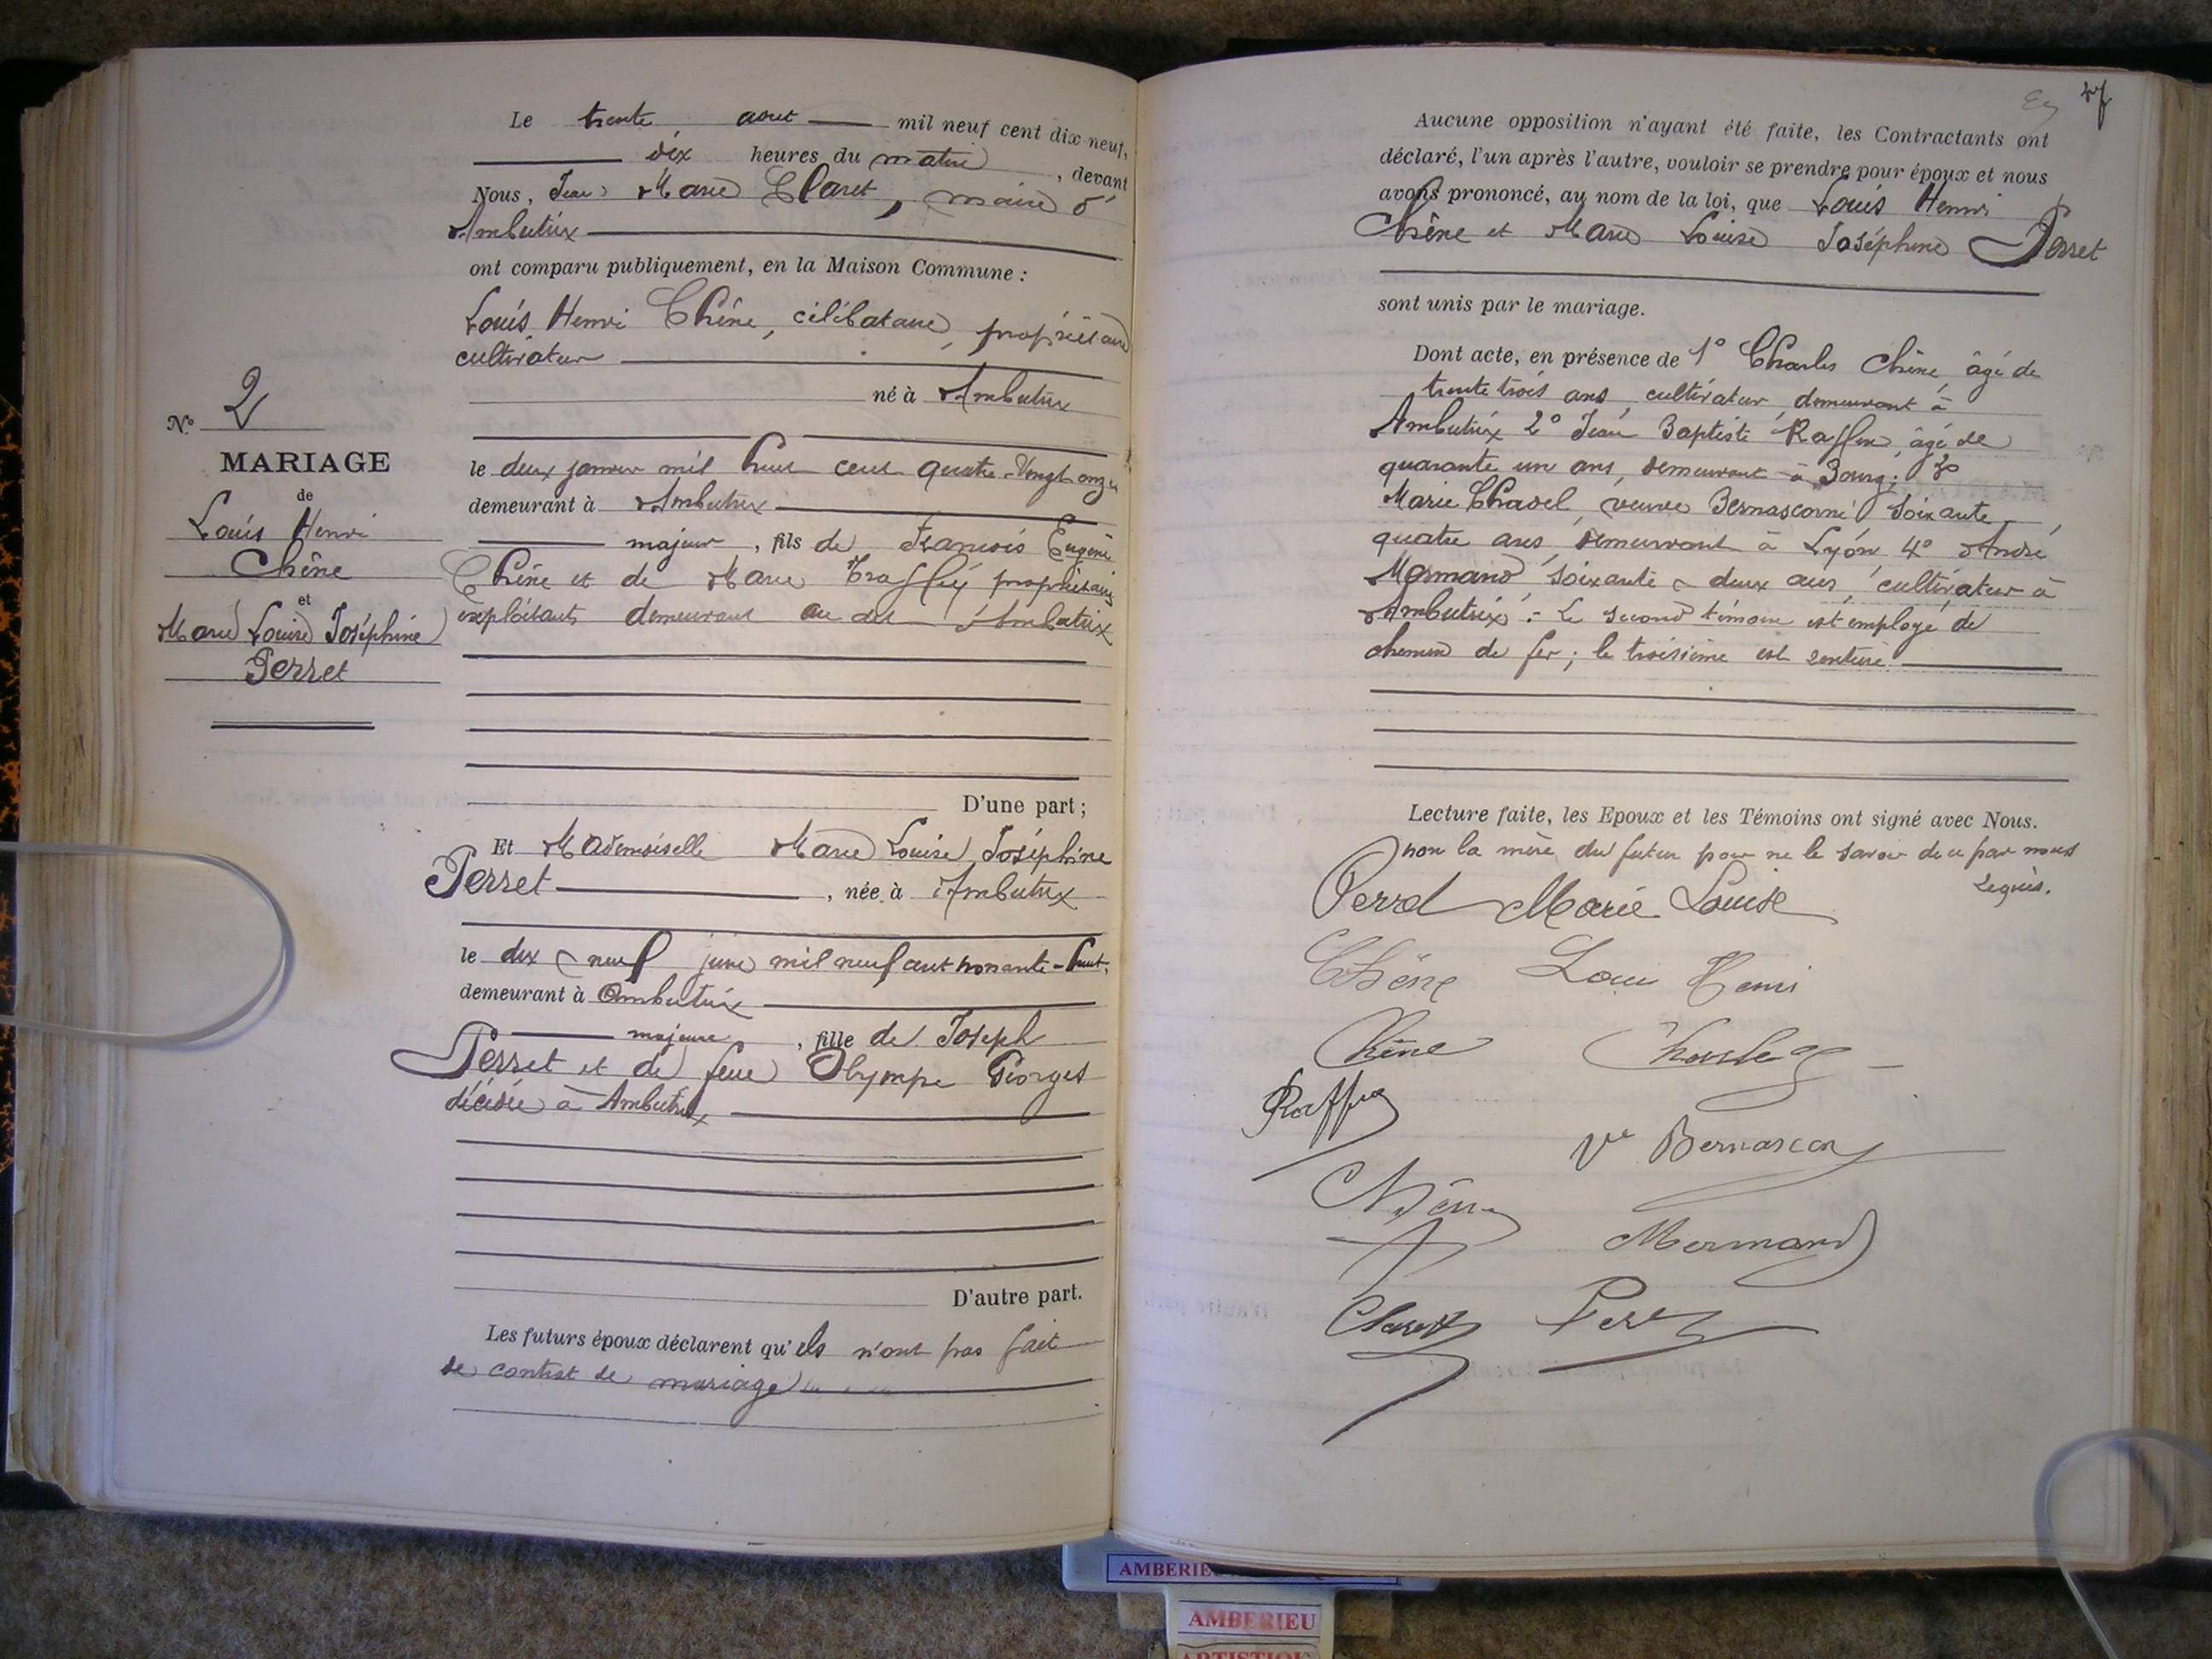 Le trente août mil neuf cent dix-neuf,
dix heures du matin, devant
Nous, Jean Marie Claret, maire d'
Ambutrix
ont comparu publiquement, en la Maison Commune :
Louis Henri Chêne, célibataire, propriétaire
cultivateur
né à Ambutrix
le deux janvier mil huit cent quatre-vingt onze
demeurant à Ambutrix
majeur, fils de François Eugène
Chêne et de Marie propriétaires
exploitants demeurant au dit Ambutrix
D'une part ;
Et Mademoiselle Marie Louise Joséphine
Perret, née à Ambutrix
le dix neuf juin mil neuf cent nonante-huit,
demeurant à Ambutrix
majeure, fille de Joseph
Perret et de feue Olympe Georges
décédée à Ambutrix
D'autre part.
Les futurs époux déclarent qu'ils n'ont pas fait
de contrat de mariage
N° 2
MARIAGE
de
Louis Henri
Chêne
et
Marie Louise Joséphine
Perret
27
Aucune opposition n'ayant été faite, les Contractants ont
déclaré, l'un après l'autre, vouloir se prendre pour époux et nous
avons prononcé, au nom de la loi, que Louis Henri
Chêne et Marie Louise Joséphine Perret
sont unis par le mariage.
Dont acte, en présence de 1° Charles Chêne, âgé de
trente trois ans, cultivateur, demeurant à
Ambutrix 2° Jean Baptiste Raffin, âgé de
quarante un ans, demeurant à Bourg; 3°
Marie Chavel, veuve Bernasconi soixante
quatre ans, demeurant à Lyon 4° André
Mermand soixante-deux ans, cultivateur à
Ambutrix. - Le second témoin est employé de
chemin de fer; le troisième est rentière
Lecture faite, les Epoux et les Témoins ont signé avec Nous.
non la mère du futur pour ne le savoir de ce par nous
requis.
Perret Marie Louise
Chêne Louis Henri
Chêne Charles
Raffin
Ve Bernascon
Chêne
Mermand
Claret Perret
AMBERIEU
AMBERIEU